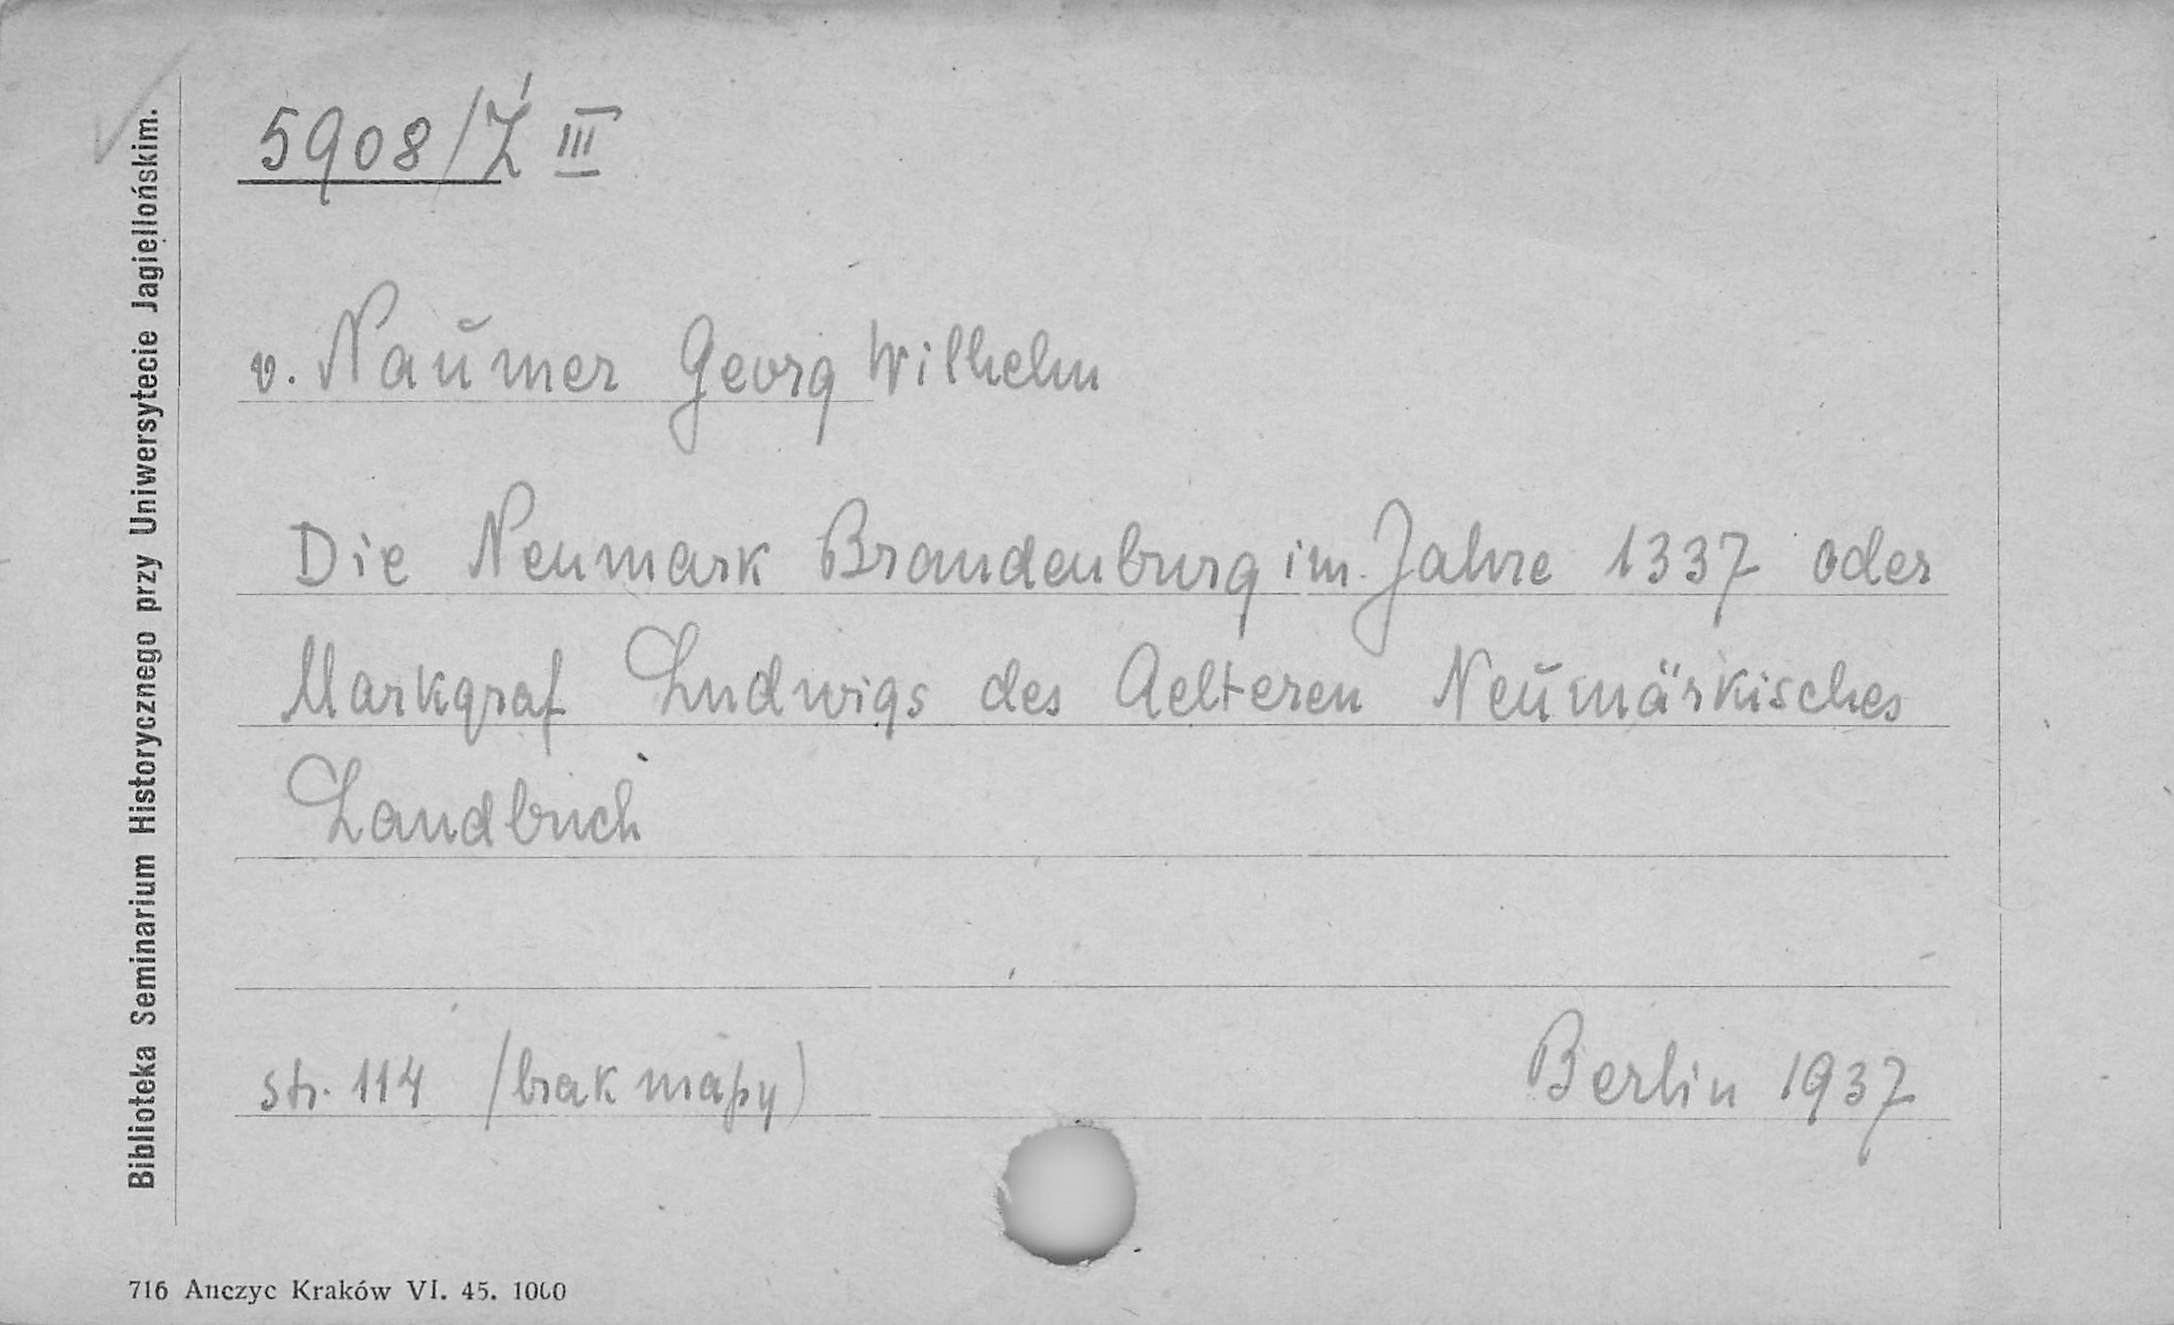 5908/Ź III
v. Naŭmer Georg Wilhelm
Die Neumark Brandenburg im Jahre 1337 oder
Markgraf Ludwigs des Aelteren Neŭmärkisches
Landbuch
str. 114 /brak mapy)
Berlin 1937
Biblioteka Seminarium Historycznego przy Uniwersytecie Jagiellońskim.
716 Anczyc Kraków VI. 45. 1000